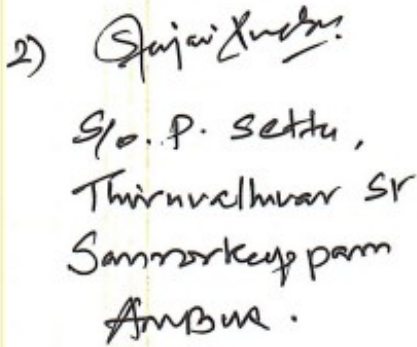 2)
S/o. P. Settu,
Thiruvalluvar St
Sannorkuppam
Ambur.